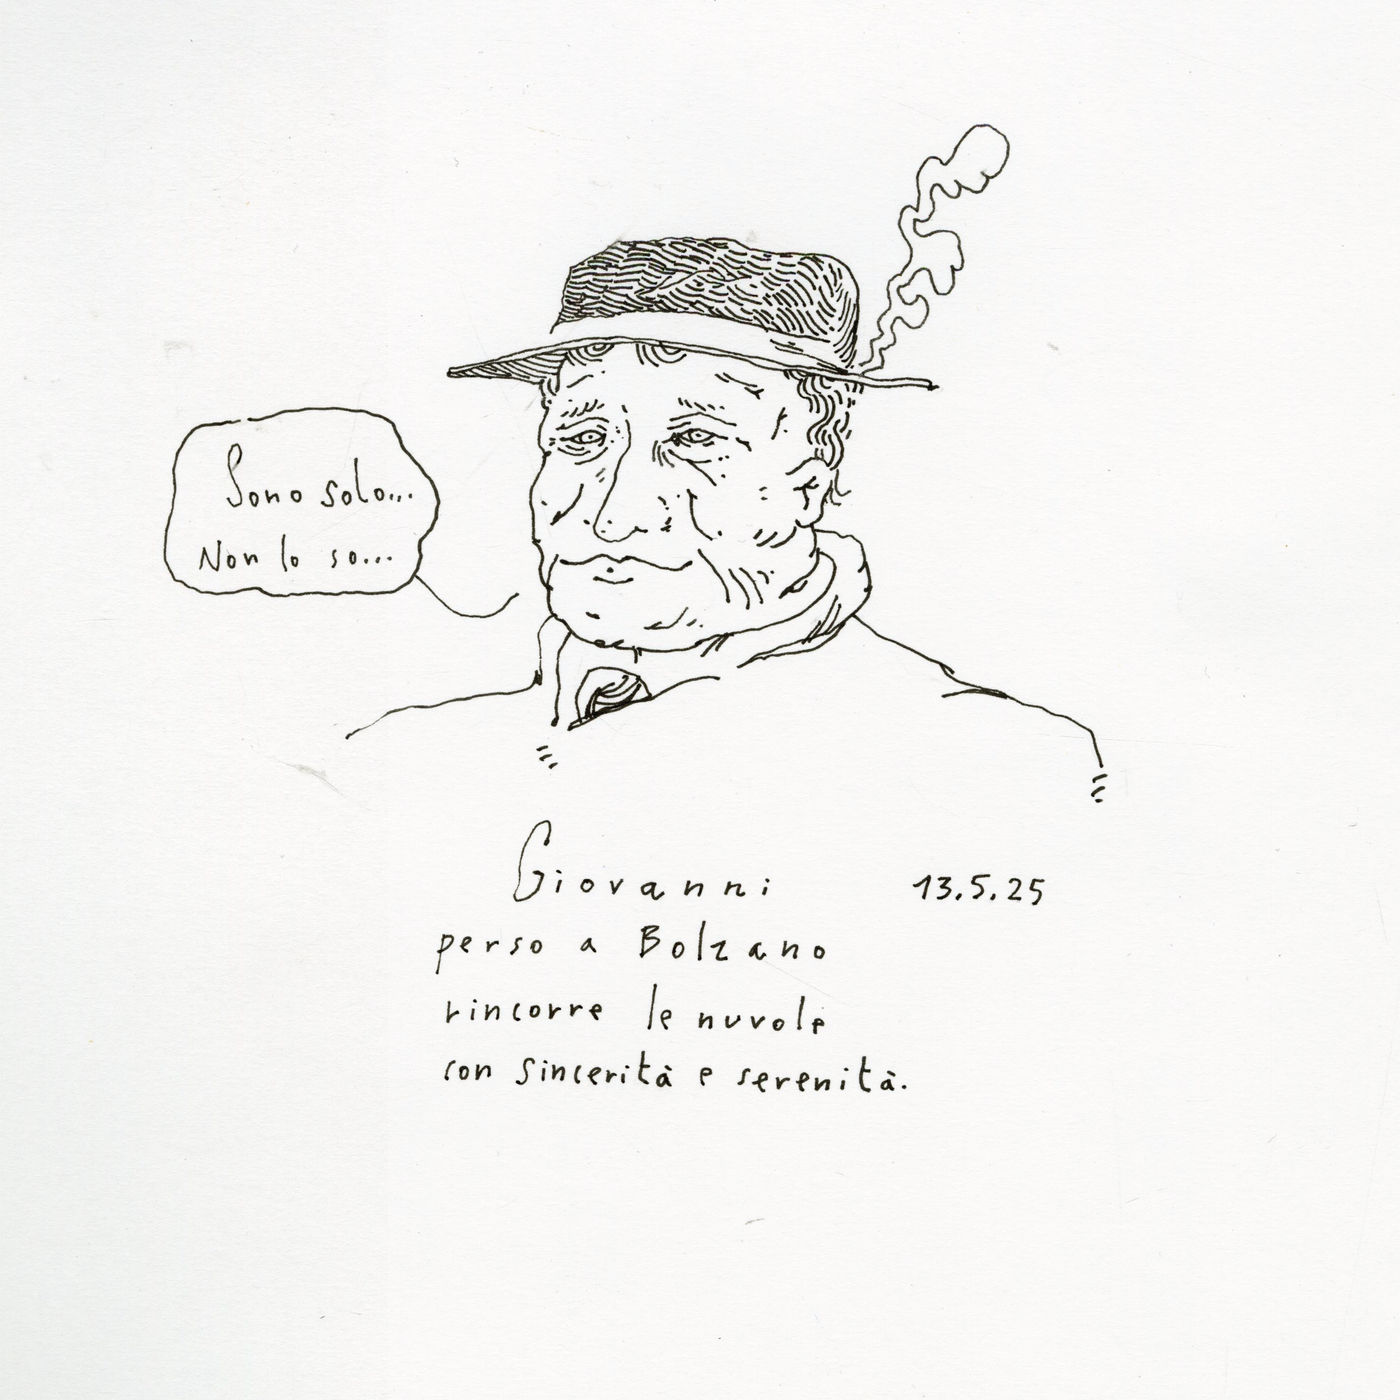 Sono solo...
Non lo so...
Giovanni 13.5.25
perso a Bolzano
rincorre le nuvole
con sincerità e serenità.